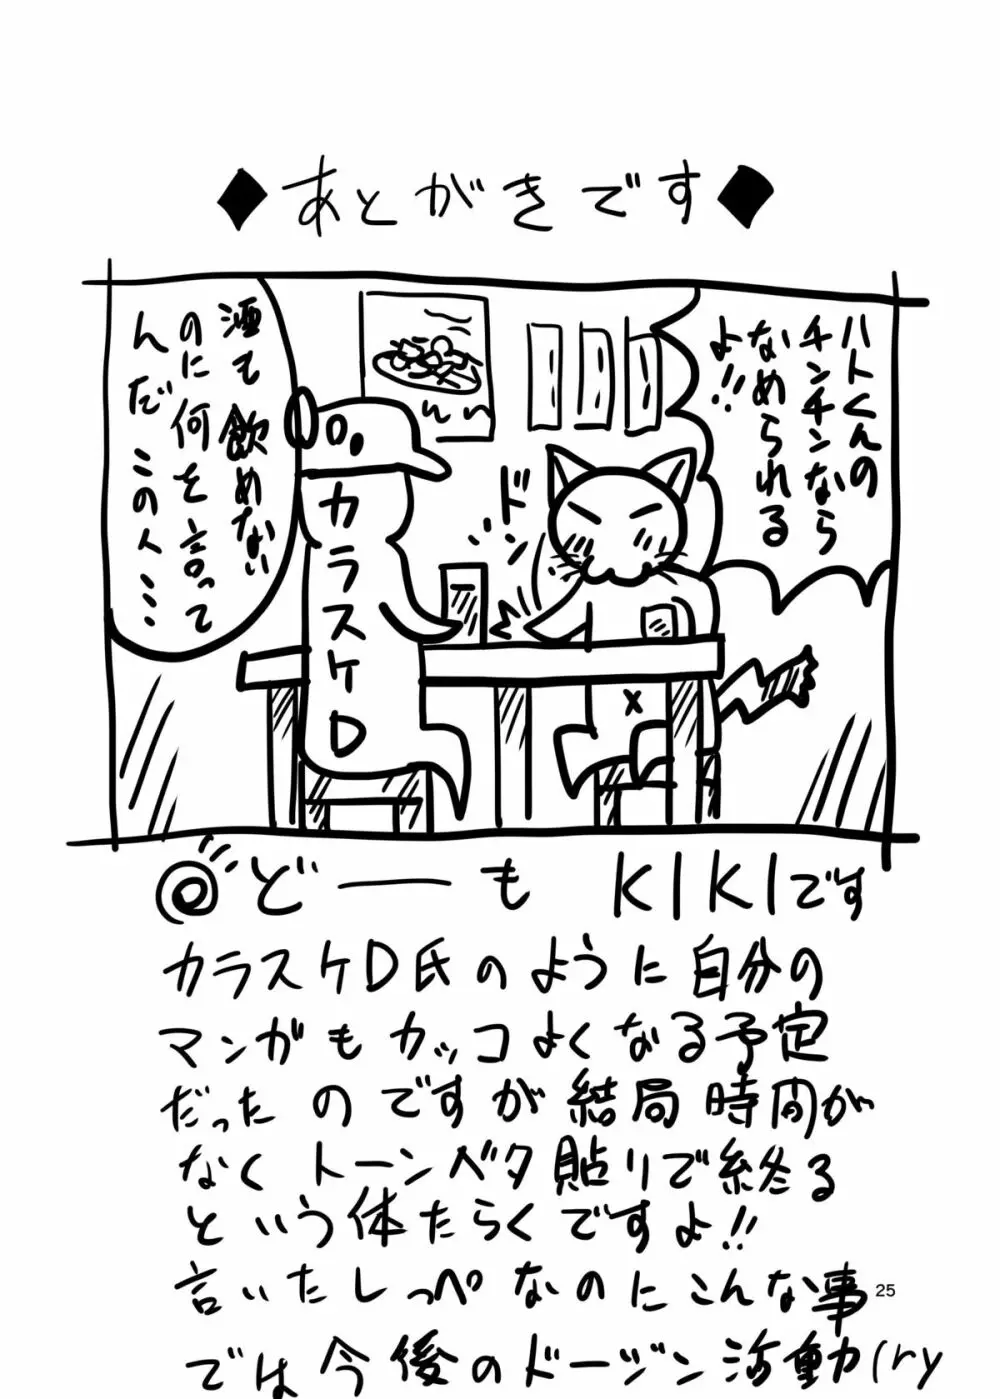 ◆あとがきです◆
ハトくんの
チンチンなら
なめられる
よ!!
ドン
酒も飲めない
のに何を言って
んだこの人……
カラスケD
どーも KIKIです
カラスケD氏のように自分の
マンガもカッコよくなる予定
だったのですが結局時間が
なくトーンベタ貼りで終る
という体たらくですよ!!
言いだしっぺなのにこんな事
では今後のドージン活動(ry
25